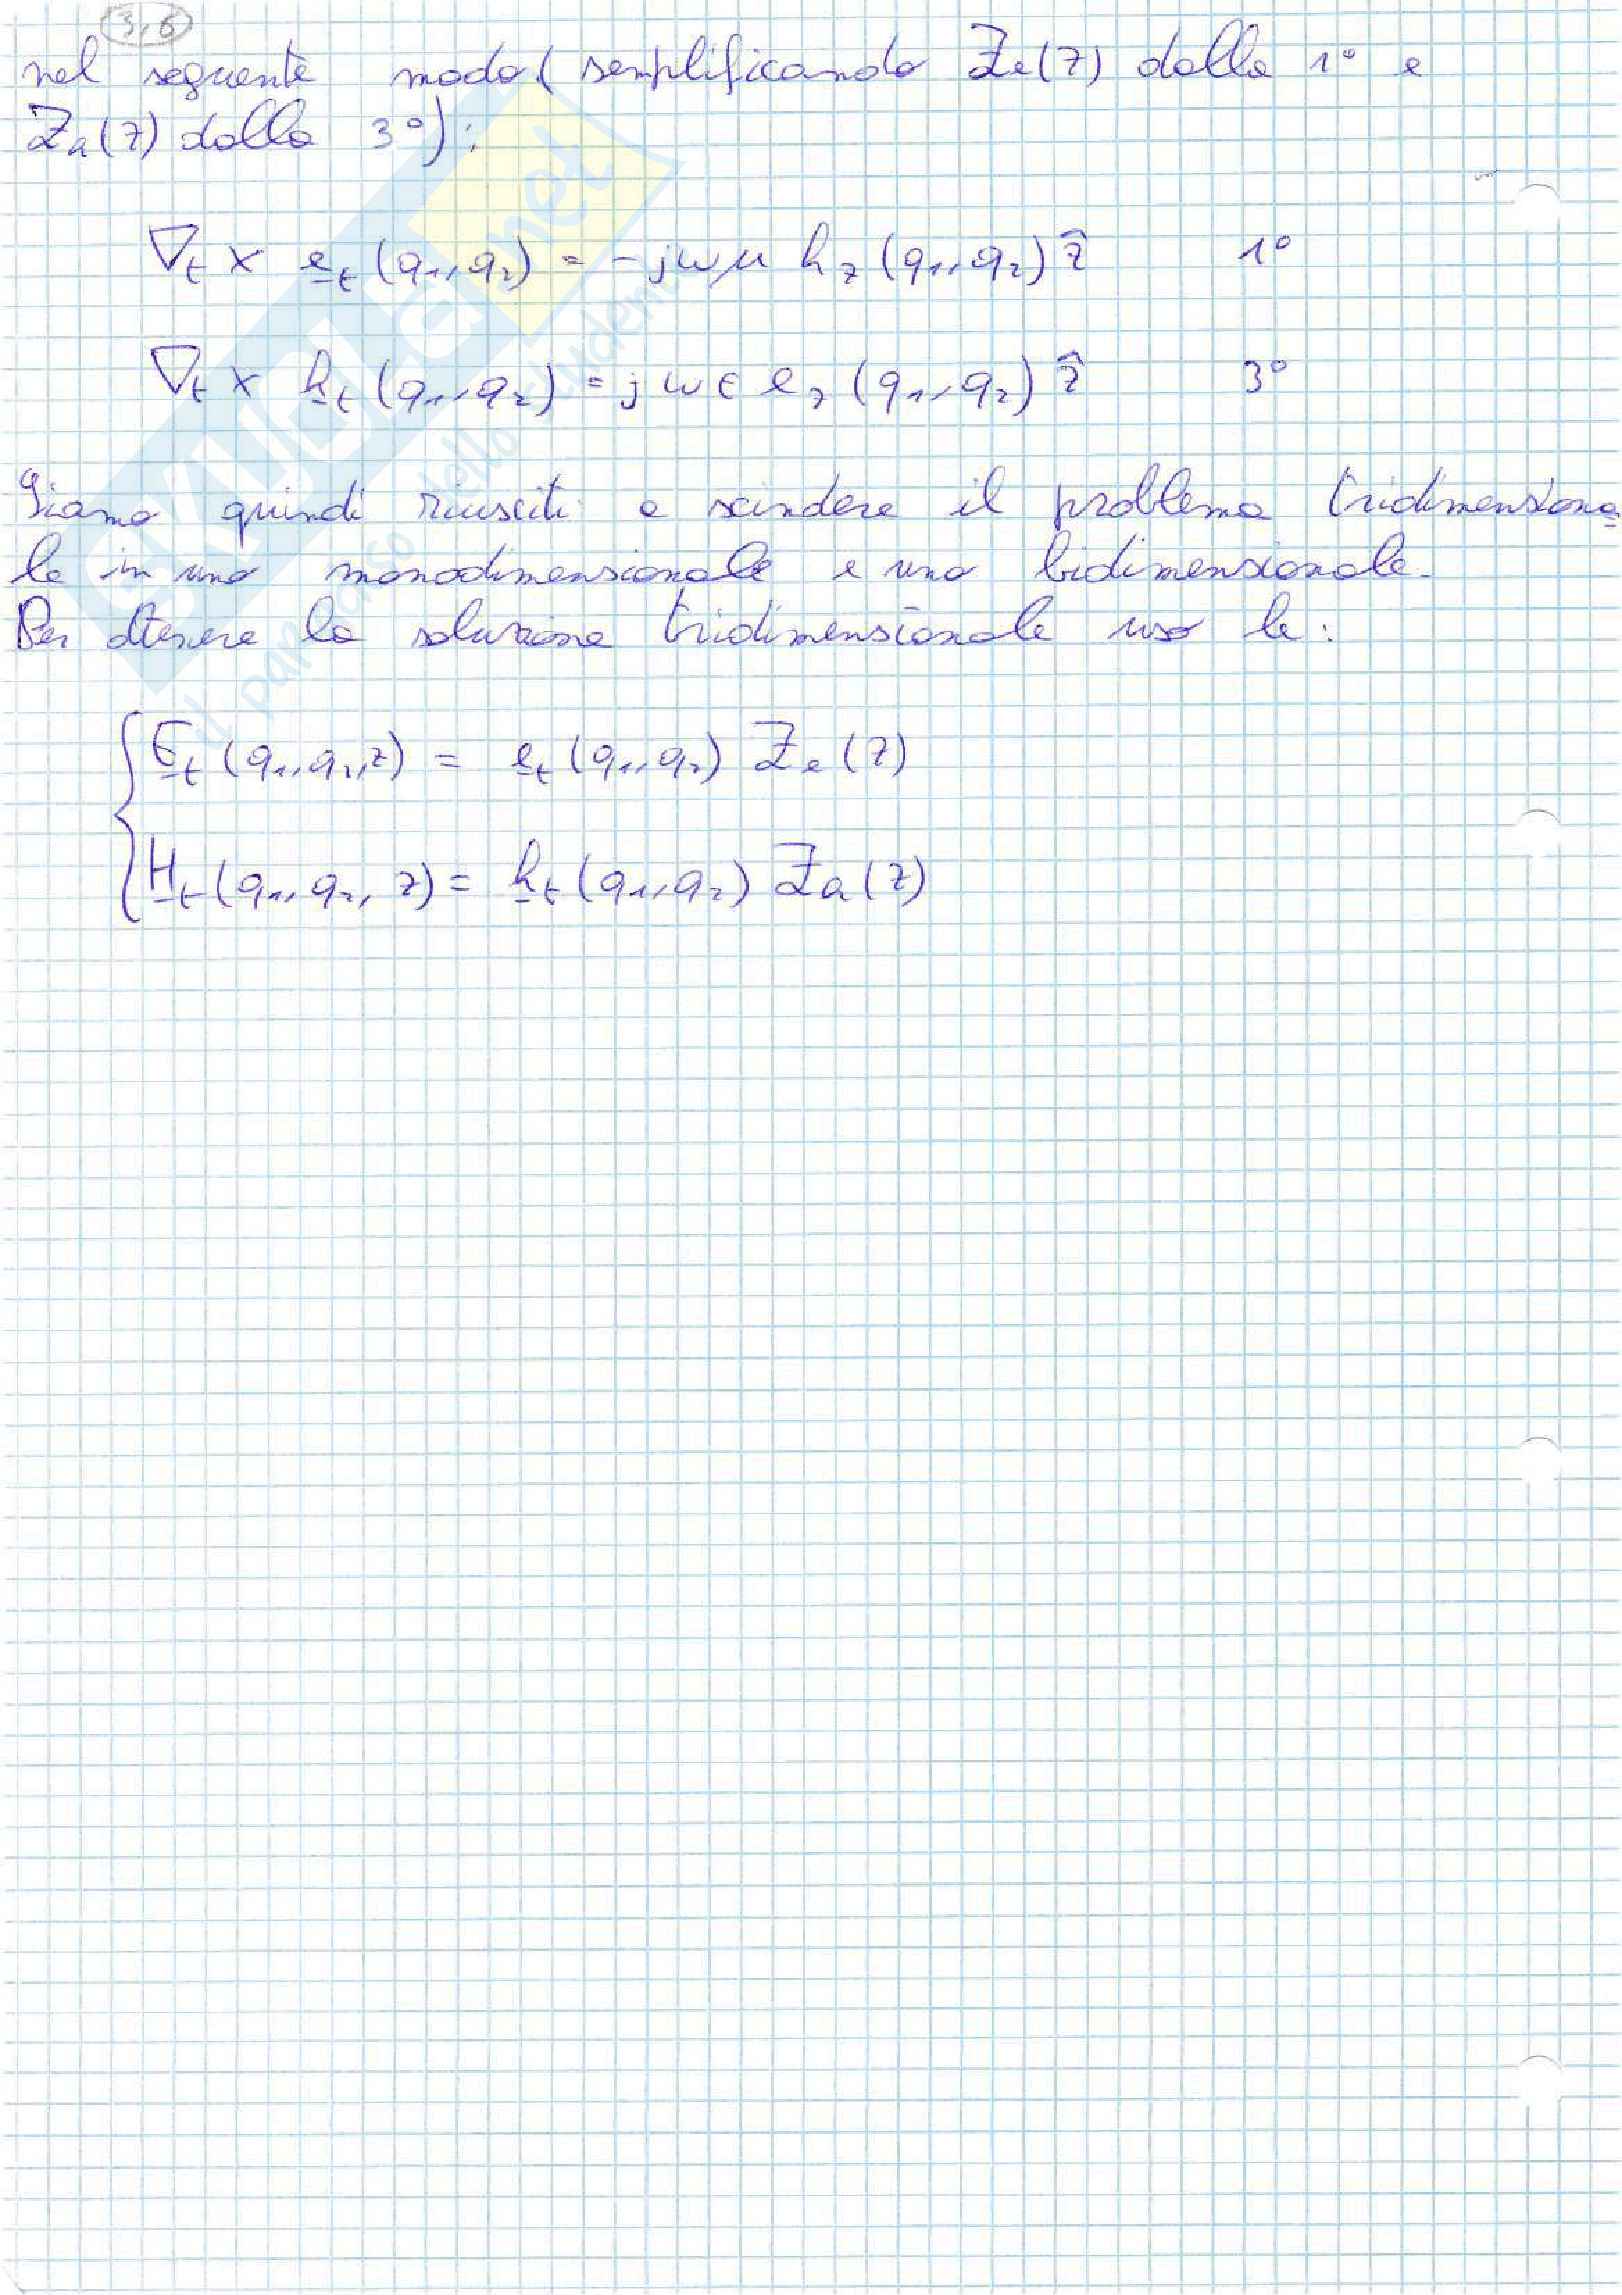 3,6
nel seguente modo (semplificando Ze(z) dalla 1° e
Za(z) dalla 3°):
∇t × et (q1, q2) = -jωμ hz (q1, q2) ẑ 1°
∇t × ht (q1, q2) = jωε ez (q1, q2) ẑ 3°
Siamo quindi riusciti a scindere il problema tridimensiona
le in uno monodimensionale e uno bidimensionale.
Per ottenere la soluzione tridimensionale uso le:
Et (q1, q2, z) = et (q1, q2) Ze (z)
Ht (q1, q2, z) = ht (q1, q2) Za (z)
SKUOLA.net
il paradiso dello studente